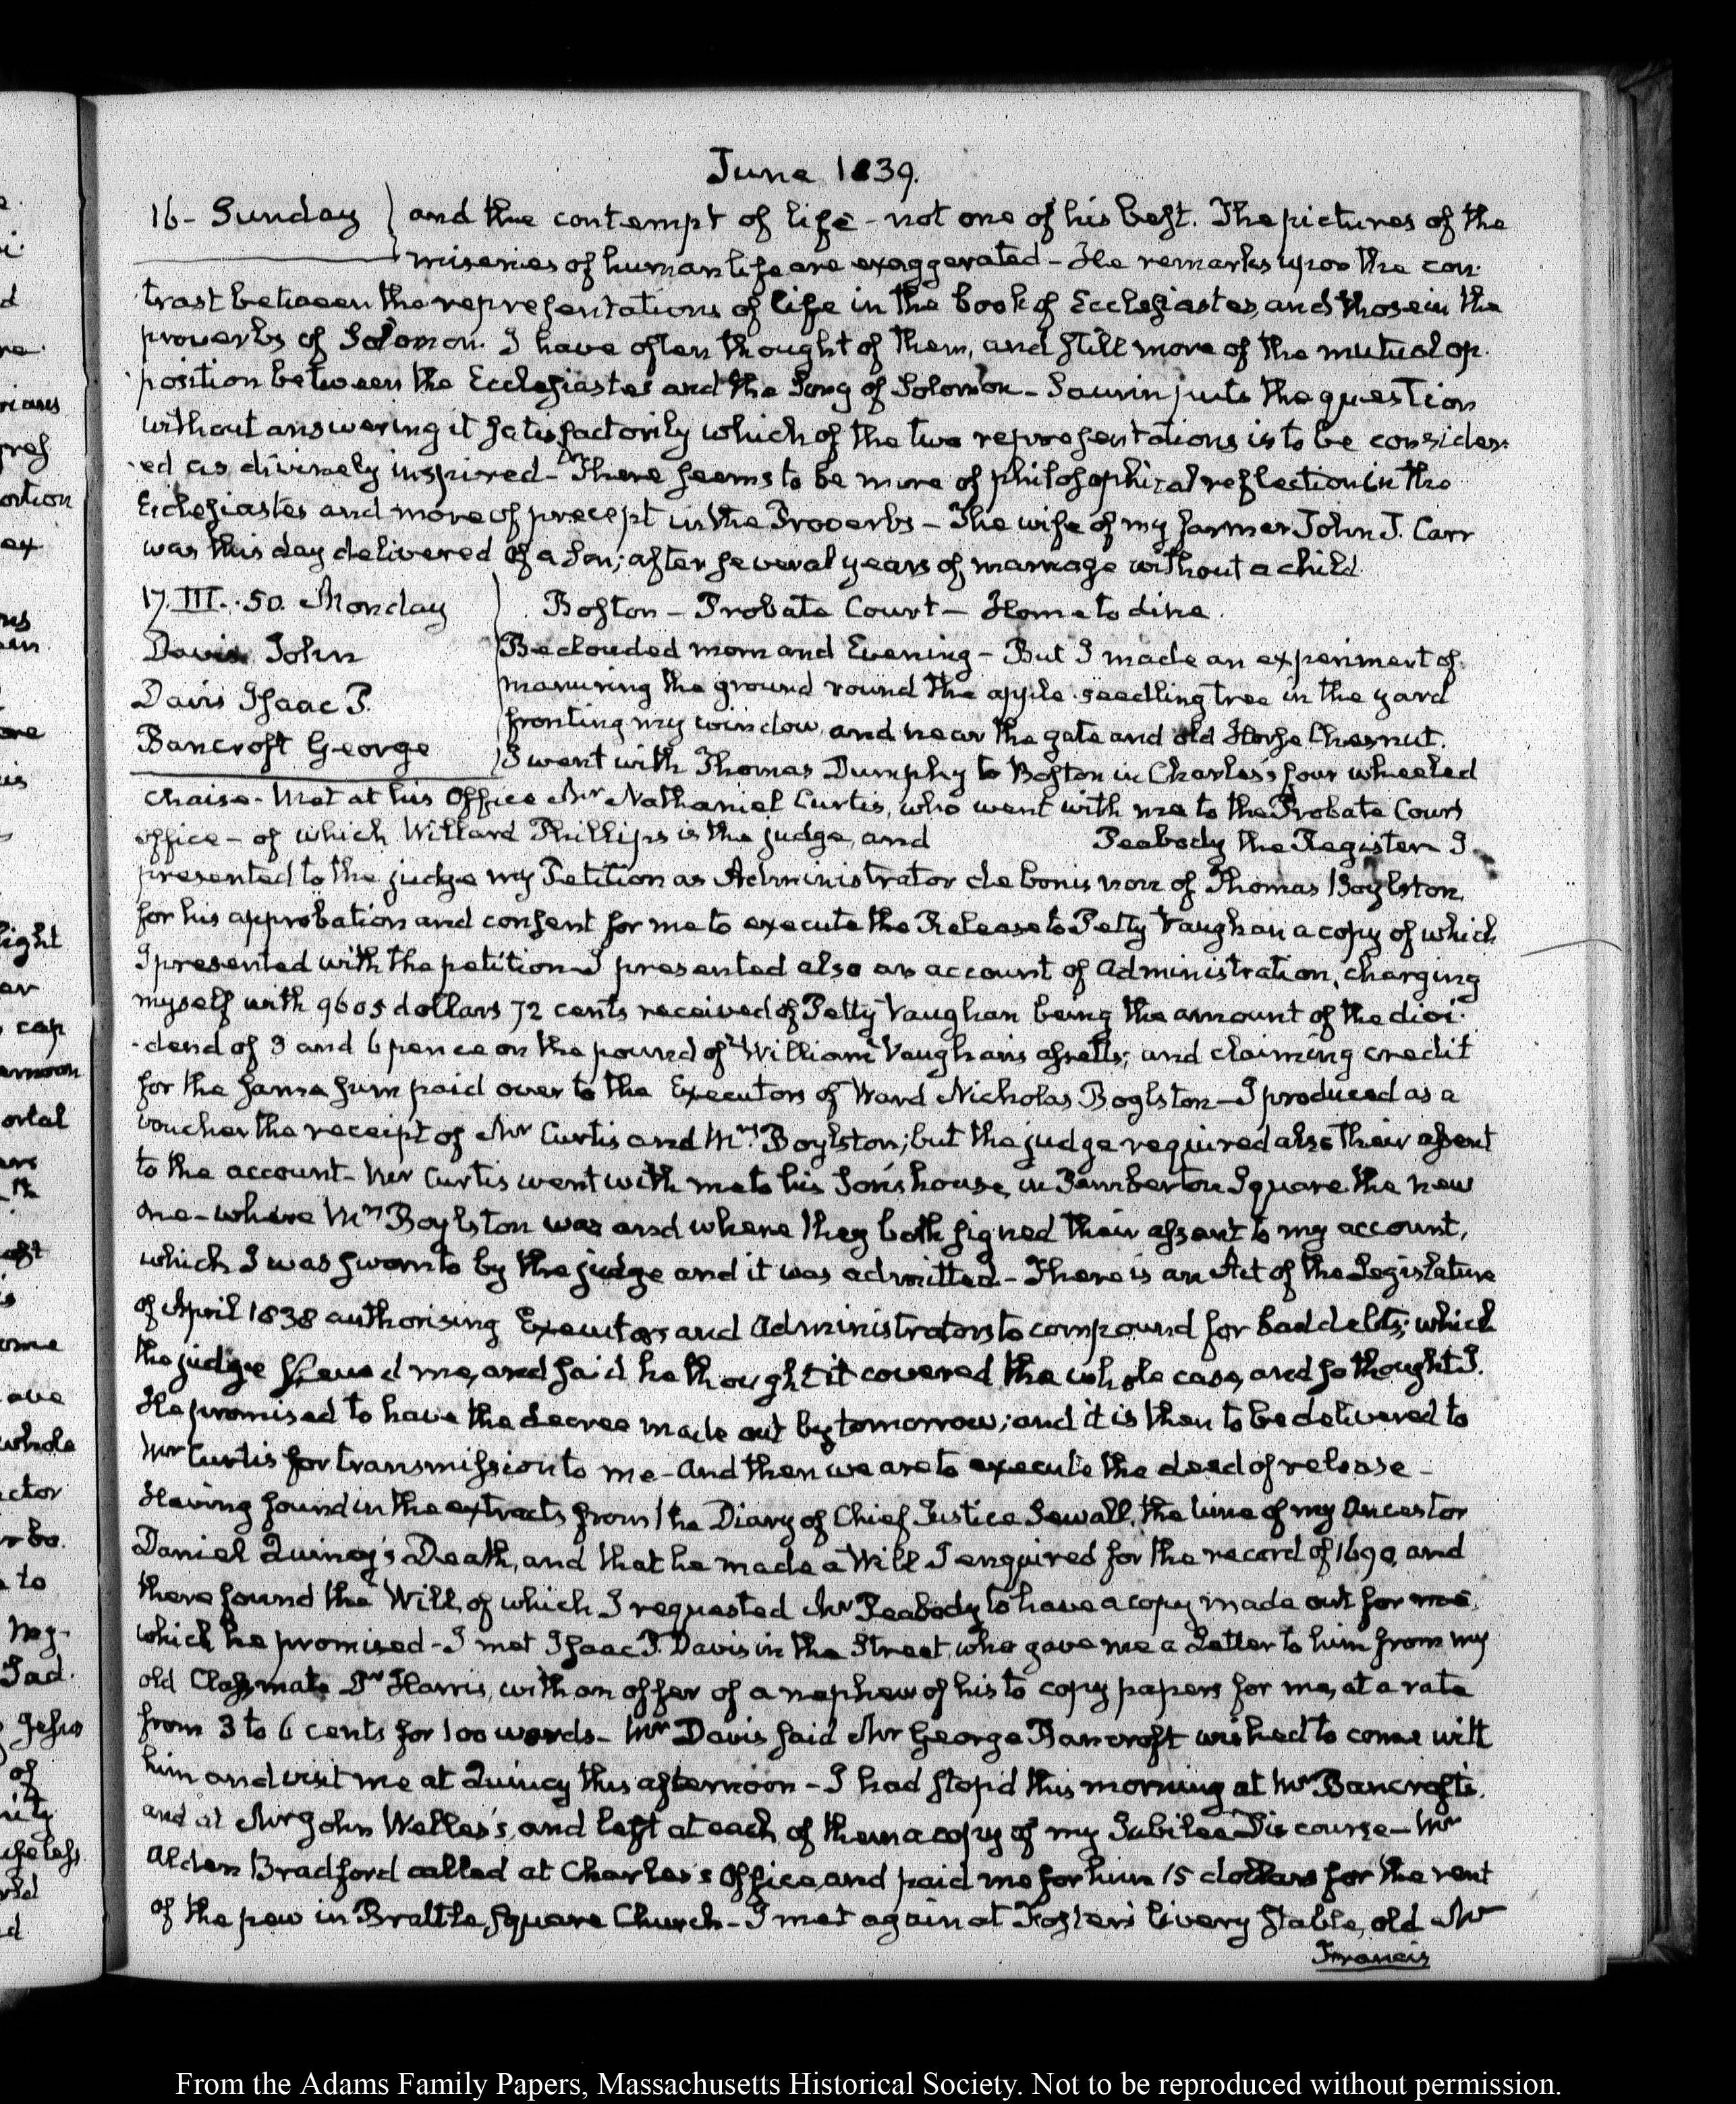 June 1839.
16 - Sunday } and true contempt of life - not one of his best. The pictures of the
miseries of human life are exaggerated - He remarks upon the con-
trast between the representations of life in the book of Ecclesiastes, and those in the
proverbs of Solomon. I have often thought of them, and still more of the mutual op-
position between the Ecclesiastes and the Song of Solomon - Saurin puts the question
without answering it satisfactorily which of the two representations is to be consider-
ed as divinely inspired - There seems to be more of philosophical reflection in the
Ecclesiastes and more of precept in the Proverbs - The wife of my farmer John J. Carr
was this day delivered of a Son; after several years of marriage without a child.
17. III.. 50. Monday } Boston - Probate Court - Home to dine.
Davis John Beclouded morn and Evening - But I made an experiment of
Davis Isaac P. manuring the ground round the apple seedling tree in the yard
fronting my window, and near the gate and old Horse Chesnut.
Bancroft George I went with Thomas Dumphy to Boston in Charles's four wheeled
chaise - Met at his Office Mr Nathaniel Curtis, who went with me to the Probate Court
office - of which Willard Phillips is the judge, and Peabody the Register I
presented to the judge my Petition as Administrator de bonis non of Thomas Boylston
for his approbation and consent for me to execute the Release to Petty Vaughan a copy of which
I presented with the petition - I presented also an account of Administration, charging
myself with 9605 dollars 72 cents received of Petty Vaughan being the amount of the divi-
dend of 3 and 6 pence on the pound of William Vaughan's assetts; and claiming credit
for the same sum paid over to the Executors of Ward Nicholas Boylston - I produced as a
voucher the receipt of Mr Curtis and Mrs Boylston; but the judge required also their assent
to the account - Mr Curtis went with me to his Son's house, in Pemberton Square the new
one - where Mrs Boylston was and where they both signed their assent to my account,
which I was sworn to by the judge and it was admitted - There is an Act of the Legislature
of April 1838 authorising Executors and Administrators to compound for bad debts; which
the judge shewed me, and said he thought it covered the whole case, and so thought I.
He promised to have the decree made out by tomorrow; and it is then to be delivered to
Mr Curtis for transmission to me - And then we are to execute the deed of release -
Having found in the extracts from the Diary of Chief Justice Sewall, the time of my Ancestor
Daniel Quincy's Death, and that he made a Will I enquired for the record of 1690, and
there found the Will, of which I requested Mr Peabody to have a copy made out for me,
which he promised - I met Isaac P. Davis in the Street, who gave me a Letter to him from my
old Classmate Dr Harris, with an offer of a nephew of his to copy papers for me, at a rate
from 3 to 6 cents for 100 words - Mr Davis said Mr George Bancroft wished to come with
him and visit me at Quincy this afternoon - I had stop'd this morning at Mr Bancroft's,
and at Mr John Welles's, and left at each of them a copy of my Jubilee Discourse - Mr
Alden Bradford called at Charles's Office, and paid me for him 15 dollars for the rent
of the pew in Brattle Square Church - I met again at Foster's livery Stable, old Mr
Francis
From the Adams Family Papers, Massachusetts Historical Society. Not to be reproduced without permission.